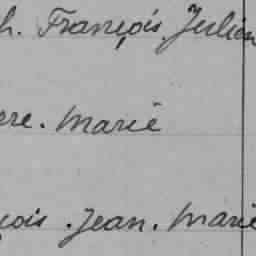 h. François Julien
ere. Marie
çois. Jean. Marie